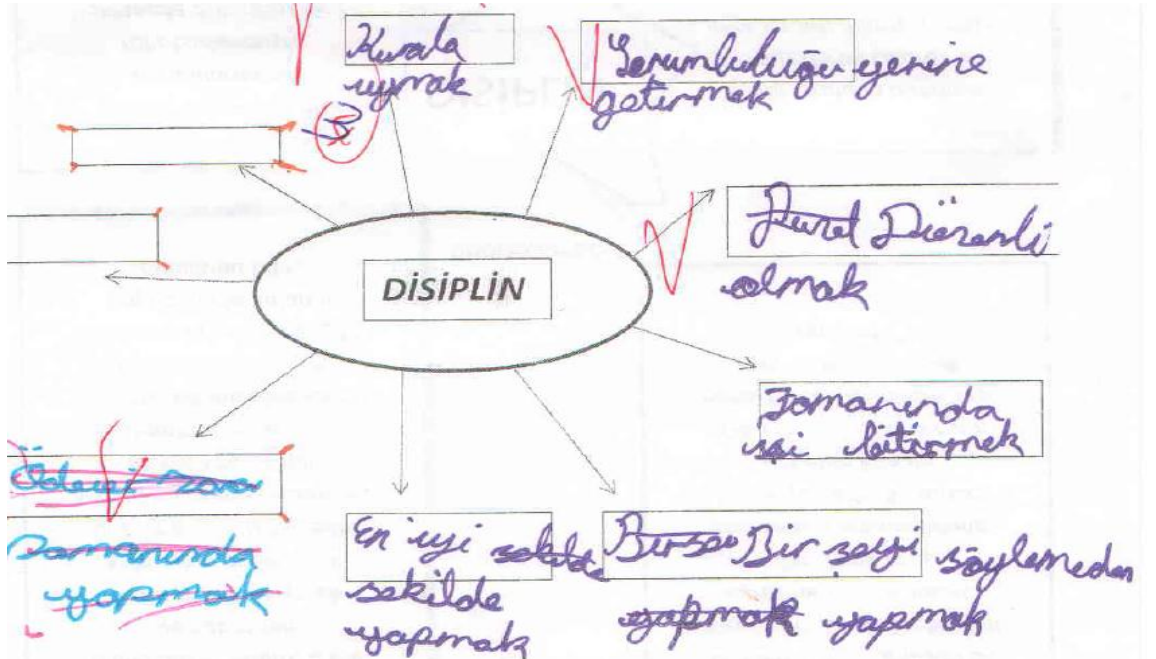 Kurala
uymak
Sorumluluğu yerine
getirmek
Düzenli
olmak
DİSİPLİN
Zamanında
işi bitirmek
Ödevi
zamanında
yapmak
En iyi şekilde
şekilde
yapmak
Bir şeyi söylemeden
yapmak yapmak